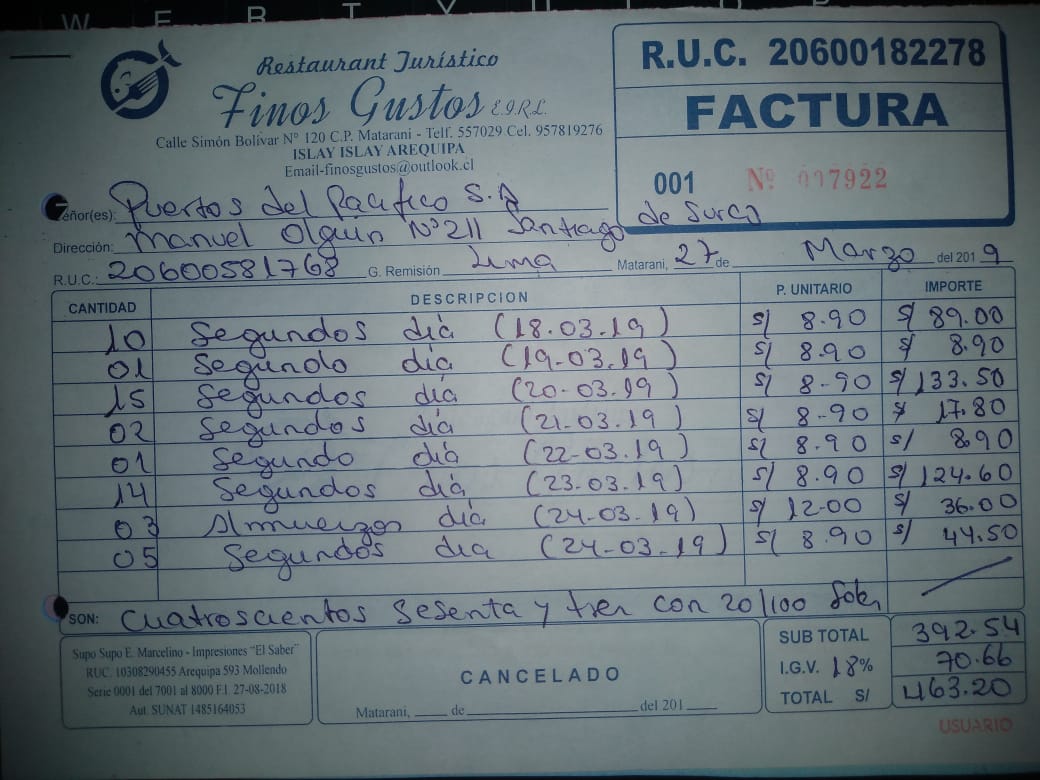 W E R T Y U I O P
Restaurant Turístico
Finos Gustos E.I.R.L.
Calle Simón Bolívar Nº 120 C.P. Matarani - Telf. 557029 Cel. 957819276
ISLAY ISLAY AREQUIPA
Email-finosgustos@outlook.cl
R.U.C. 20600182278
FACTURA
001 Nº 007922
eñor(es): Puertos del Pacifico S.A
Dirección: Manuel Olguin Nº 211 Santiago de Surco
R.U.C.: 20600581768 G. Remisión Lima Matarani, 27 de Marzo del 2019
CANTIDAD DESCRIPCION P. UNITARIO IMPORTE
10 Segundos dia (18.03.19) S/ 8.90 S/ 89.00
01 Segundo dia (19-03.19) S/ 8.90 S/ 8.90
15 Segundos dia (20-03.19) S/ 8-90 S/ 133.50
02 Segundos dia (21-03.19) S/ 8-90 S/ 17.80
01 Segundo dia (22-03.19) S/ 8.90 S/ 8.90
14 Segundos dia (23.03.19) S/ 8.90 S/ 124.60
03 Almuerzos dia (24-03.19) S/ 12.00 S/ 36.00
05 Segundos dia (24-03.19) S/ 8.90 S/ 44.50
SON: Cuatroscientos Sesenta y tres con 20/100 Soles
Supo Supo E. Marcelino - Impresiones "El Saber"
RUC. 10308290455 Arequipa 593 Mollendo
Serie 0001 del 7001 al 8000 F.I. 27-08-2018
Aut. SUNAT 1485164053
CANCELADO
Matarani, de del 201
SUB TOTAL 392.54
I.G.V. 18% 70.66
TOTAL S/ 463.20
USUARIO